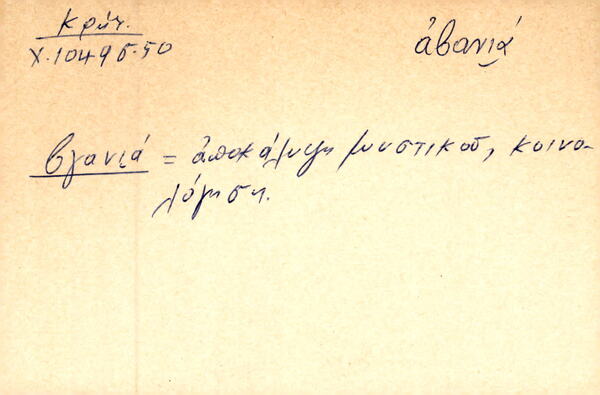 Κρήτ.
Χ. 10495.50
ἀβανιά
βγανιά = ἀποκάλυψη μυστικοῦ, κοινο-
λόγηση.